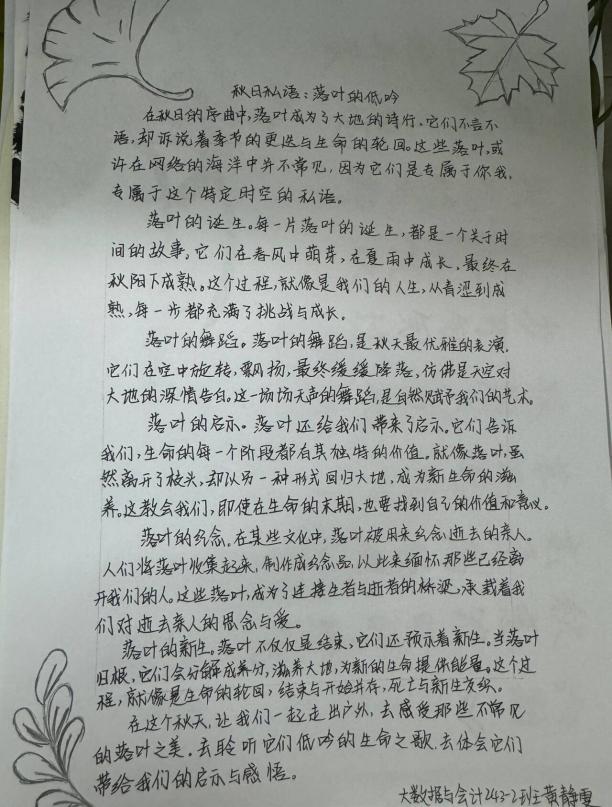 秋日私语：落叶的低吟
在秋日的序曲中，落叶成为了大地的诗行。它们不言不
语，却诉说着季节的更迭与生命的轮回。这些落叶，或
许在网络的海洋中并不常见，因为它们是专属于你我，
专属于这个特定时空的私语。
落叶的诞生。每一片落叶的诞生，都是一个关于时
间的故事。它们在春风中萌芽，在夏雨中成长，最终在
秋阳下成熟。这个过程，就像是我们的人生，从青涩到成
熟，每一步都充满了挑战与成长。
落叶的舞蹈。落叶的舞蹈，是秋天最优雅的表演。
它们在空中旋转，飘扬，最终缓缓降落，仿佛是天空对
大地的深情告白。这一场场无声的舞蹈，是自然赋予我们的艺术。
落叶的启示。落叶还给我们带来了启示。它们告诉
我们，生命的每一个阶段都有其独特的价值。就像落叶，虽
然离开了枝头，却以另一种形式回归大地，成为新生命的滋
养。这教会我们，即使在生命的末期，也要找到自己的价值和意义。
落叶的纪念。在某些文化中，落叶被用来纪念逝去的亲人。
人们将落叶收集起来，制作成纪念品，以此来缅怀那些已经离
开我们的人。这些落叶，成为了连接生者与逝者的桥梁，承载着我
们对逝去亲人的思念与爱。
落叶的新生。落叶不仅仅是结束，它们还预示着新生。当落叶
归根，它们会分解成养分，滋养大地，为新的生命提供能量。这个过
程，就像是生命的轮回，结束与开始并存，死亡与新生交织。
在这个秋天，让我们一起走出户外，去感受那些不常见
的落叶之美，去聆听它们低吟的生命之歌，去体会它们
带给我们的启示与感悟。
大数据与会计243-2班黄静雯